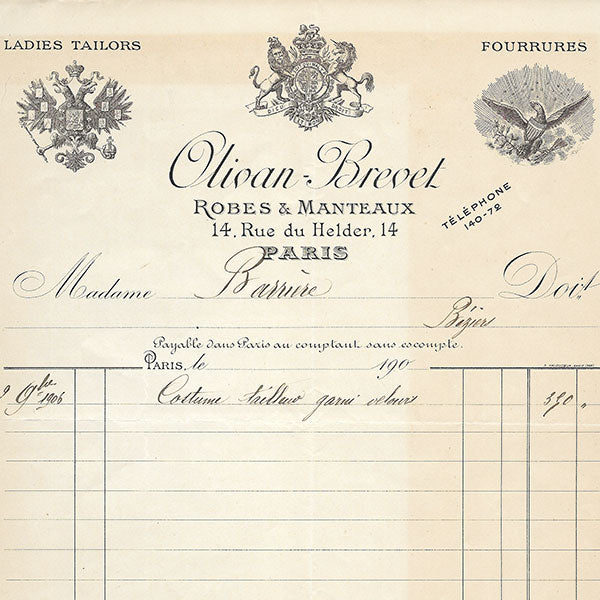 LADIES TAILORS
FOURRURES
Olivan-Brevet
ROBES & MANTEAUX
14, Rue du Helder, 14
PARIS
TÉLÉPHONE
140-72
Madame Barrière Doit,
Béziers
Payable dans Paris au comptant sans escompte.
PARIS, le 190
9bre 1906 Costume tailleur garni velours 330 "